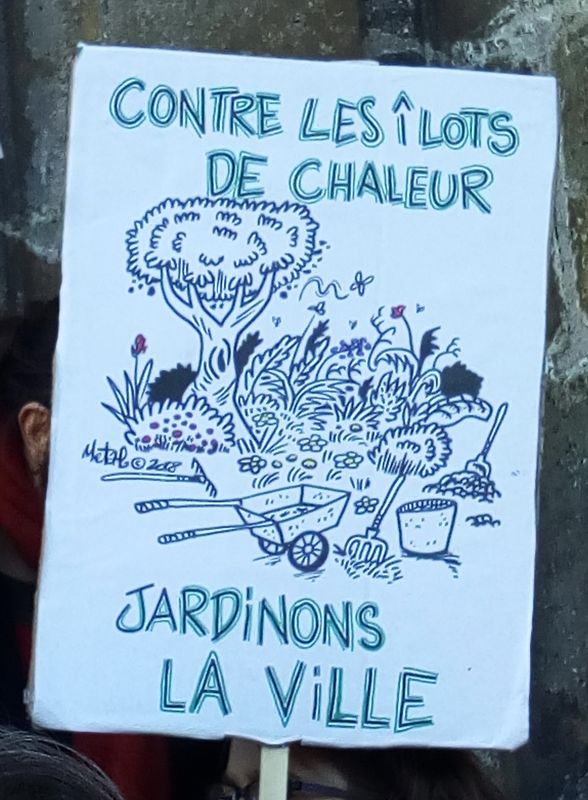 CONTRE LES ÎLOTS
DE CHALEUR
© 2018
JARDiNONS
LA ViLLE